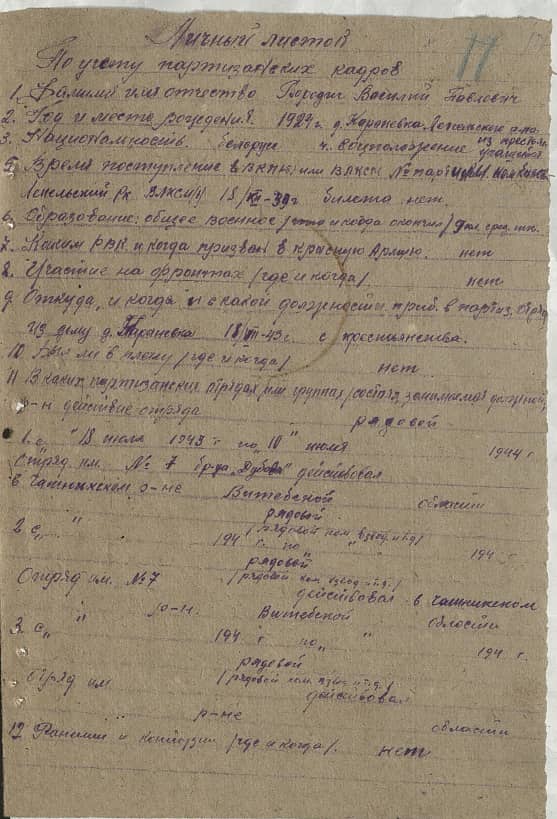 Личный листок
По учету партизанских кадров
17
1. Фамилия имя отчество Василий Павлович
2. Год и место рождения. 1924 г. д.
3. Национальность. белорус ч. Соцположение из крестьян
учащегося
5. Время поступление в ВКП(б) или ВЛКСМ №
Лепельский Рк ВЛКСМ 18/ -39г билета нет.
6. Образование: общее военное и когда окончил
7. Каким РВК и когда призван в Красную Армию. нет
8. Участие на фронтах /где и когда/. нет
9. Откуда, и когда и в какой должности приб. в партиз. отряд
из дому д. 18/ -43г. с крестьянства.
10 Был ли в плену /где и когда/ нет
11 В каких партизанских отрядах или группах /состоял, занимаемая должность,
р-н действие отряда рядовой
1. с "18 июля 1943 г по "10" июля 1944 г
Отряд им. № 7 бр-да "Дубова" действовал
в Чашникском р-не Витебской области
рядовой
2 с " 194 г. по " 194 г.
/рядовой ком. взвод и т.д/
рядовой
Отряд им. №7 /рядовой ком. взвод и т.д./
действовал в Чашникском
" р-н. Витебской области
3. с " 194 г по " 194 г.
рядовой
Отряд им /рядовой ком. взвод и т.д./
действовал
р-не области
12 Ранения и контузии /где и когда/. нет